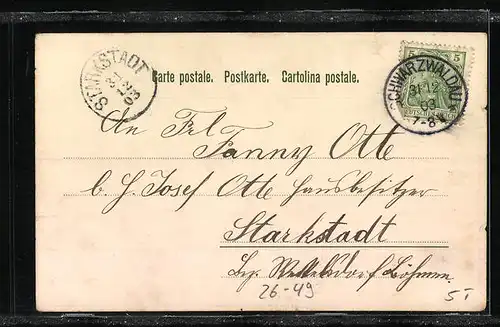 STARKSTADT
31 12 03
Carte postale. Postkarte. Cartolina postale.
5 5
SCHWARZWALDAU
31 12 03
7-8V
An Frl
Fanny Otte
b. H. Josef Otte Hausbesitzer
Starkstadt
Bez. Wekelsdorf Böhmen.
26-49
5.-